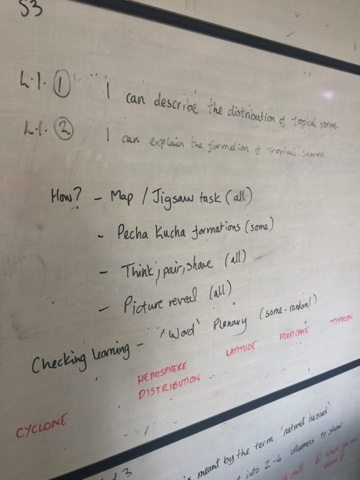 S3
L.I. 1 I can describe the distribution of tropical storms.
L.I. 2 I can explain the formation of tropical storms
How? - Map / Jigsaw task (all)
- Pecha Kucha formations (some)
- Think, pair, share (all)
- Picture reveal (all)
Checking learning - 'Word' Plenary (some-random!)
HEMISPHERE LATITUDE HURRICANE TYPHOON
DISTRIBUTION
CYCLONE
3
is meant by the term 'natural hazard'
into 2-4 columns to show